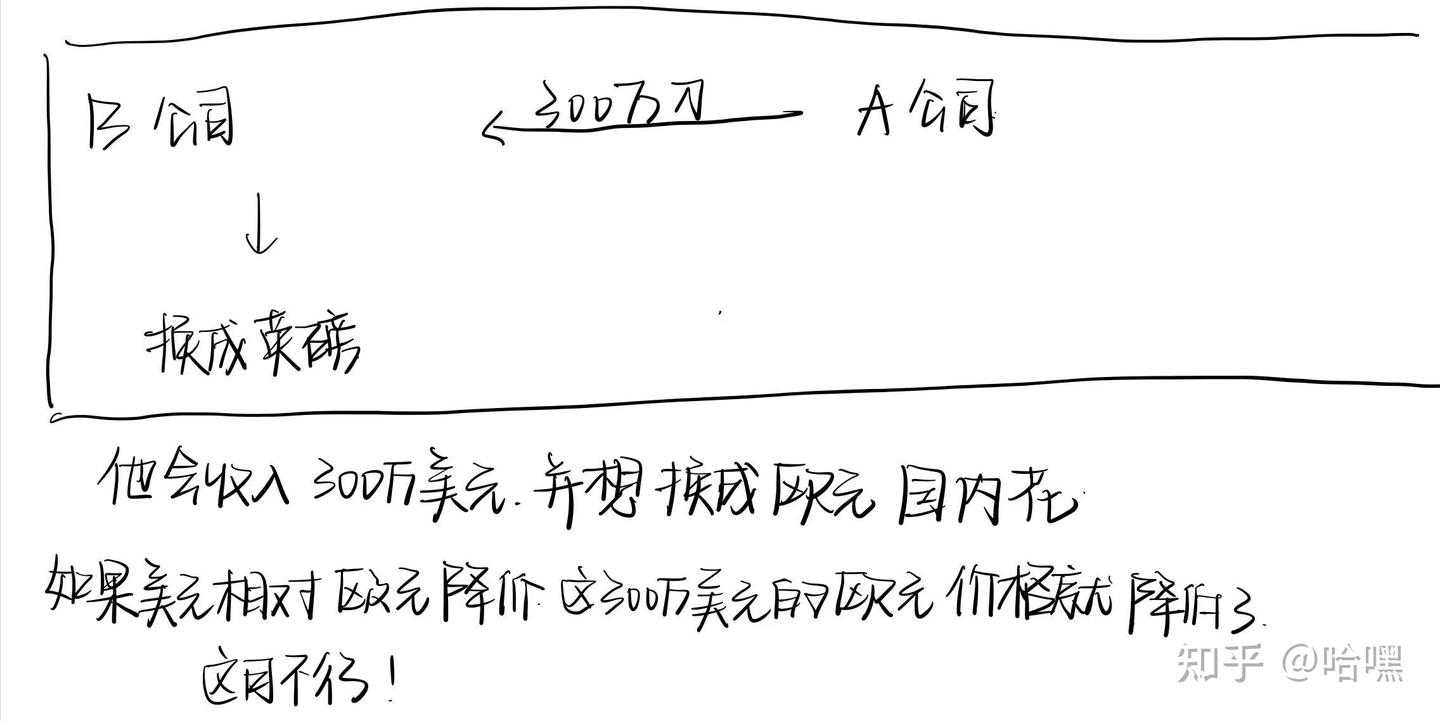 B公司 300万刀 A公司
↓
换成英磅
他会收入300万美元.并想换成欧元国内花
如果美元相对欧元降价 这300万美元的欧元价格就降低了.
这可不行!
知乎 @哈嘿